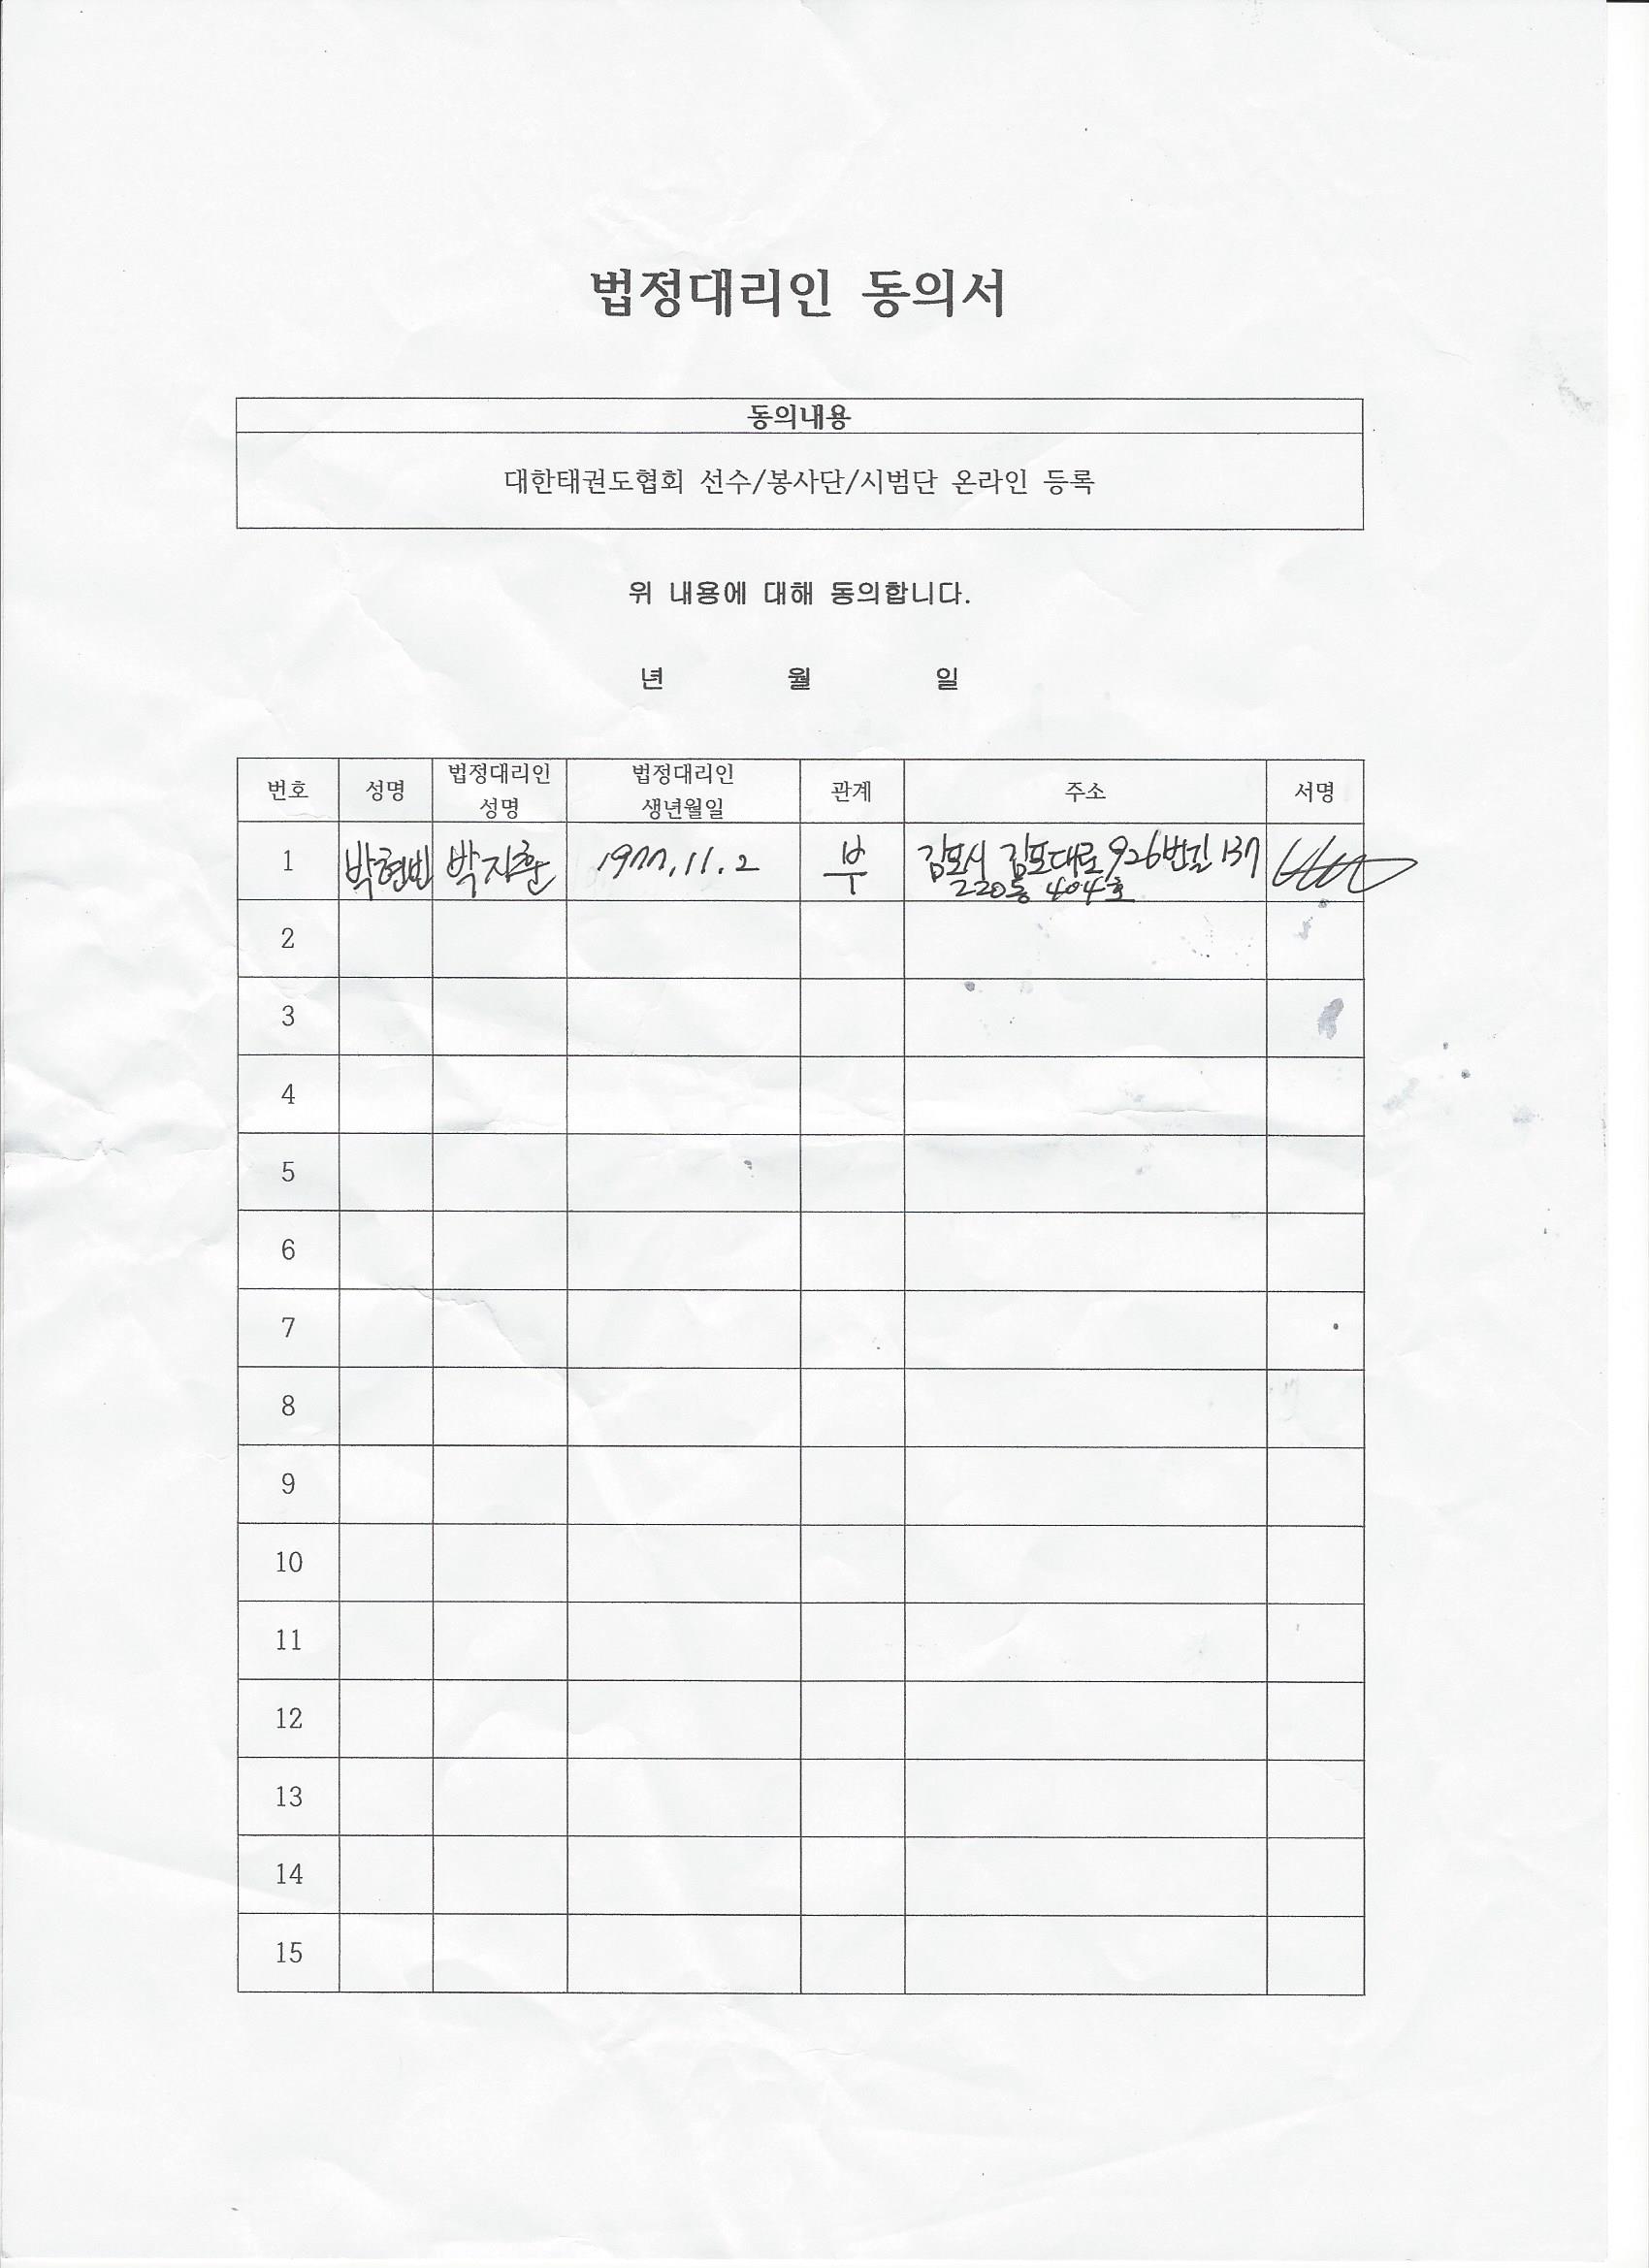 법정대리인 동의서
동의내용
대한태권도협회 선수/봉사단/시범단 온라인 등록
위 내용에 대해 동의합니다.
년 월 일
번호 성명 법정대리인 성명 법정대리인 생년월일 관계 주소 서명
1 박현빈 박지훈 1977.11.2 부 김포시 김포대로 926번길 137
220동 404호
2
3
4
5
6
7
8
9
10
11
12
13
14
15